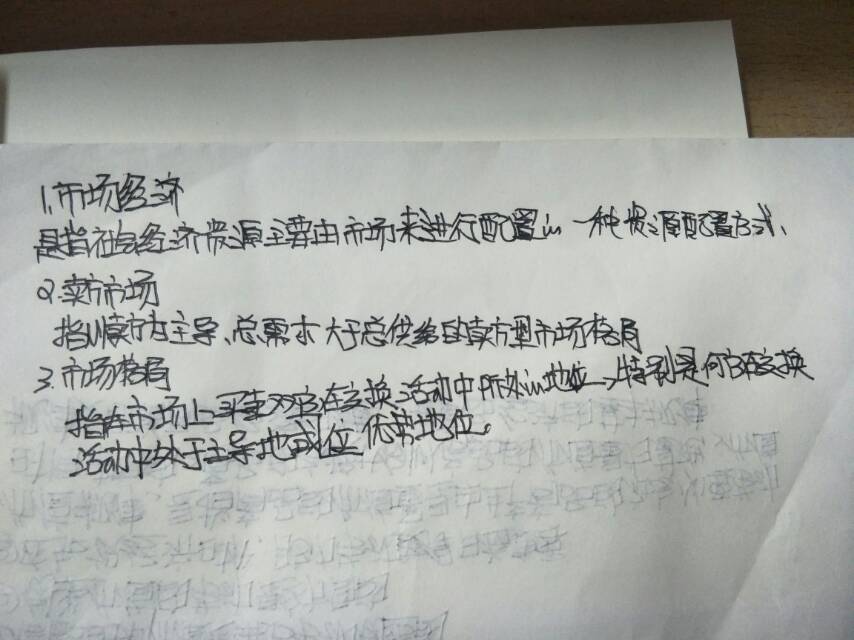 1.市场经济
是指社会经济资源主要由市场来进行配置的一种资源配置方式、
2.卖方市场
指以卖方为主导、总需求大于总供给的卖方型市场格局
3.市场格局
指在市场上买卖双方在交换活动中所处的地位,特别是何方在交换
活动中处于主导地或位优势地位。